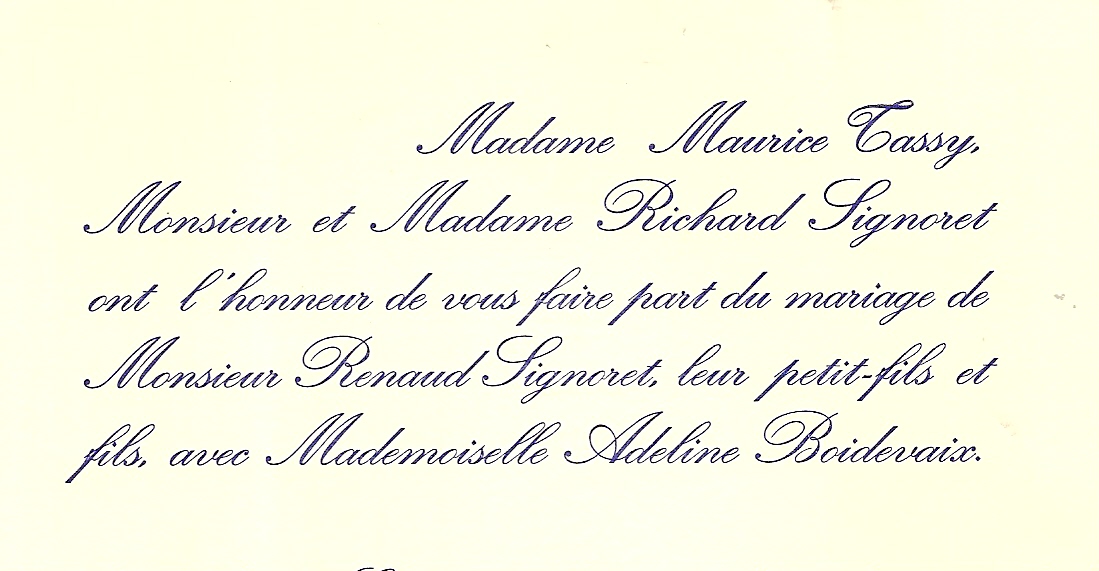 Madame Maurice Tassy,
Monsieur et Madame Richard Signoret
ont l'honneur de vous faire part du mariage de
Monsieur Renaud Signoret, leur petit-fils et
fils, avec Mademoiselle Adeline Boidevaix.